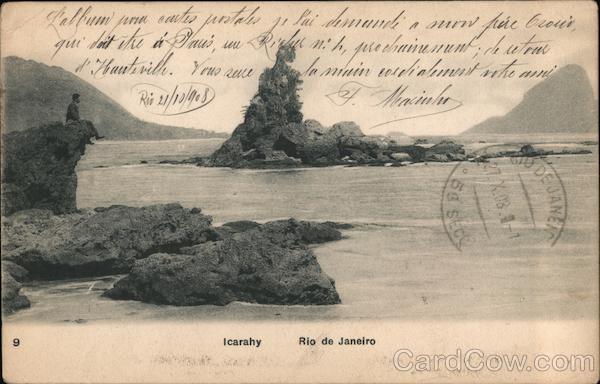 L'album pour cartes postales je l'ai demandé a mon père
qui doit être à Paris, rue Richer nº 4, prochainement; de retour
d'Hauteville. Vous serre la main cordialement votre ami
Rio 21/10/908
F. Marinho
RIO DE JANEIRO
5ª SEC
9 Icarahy Rio de Janeiro
CardCow.com